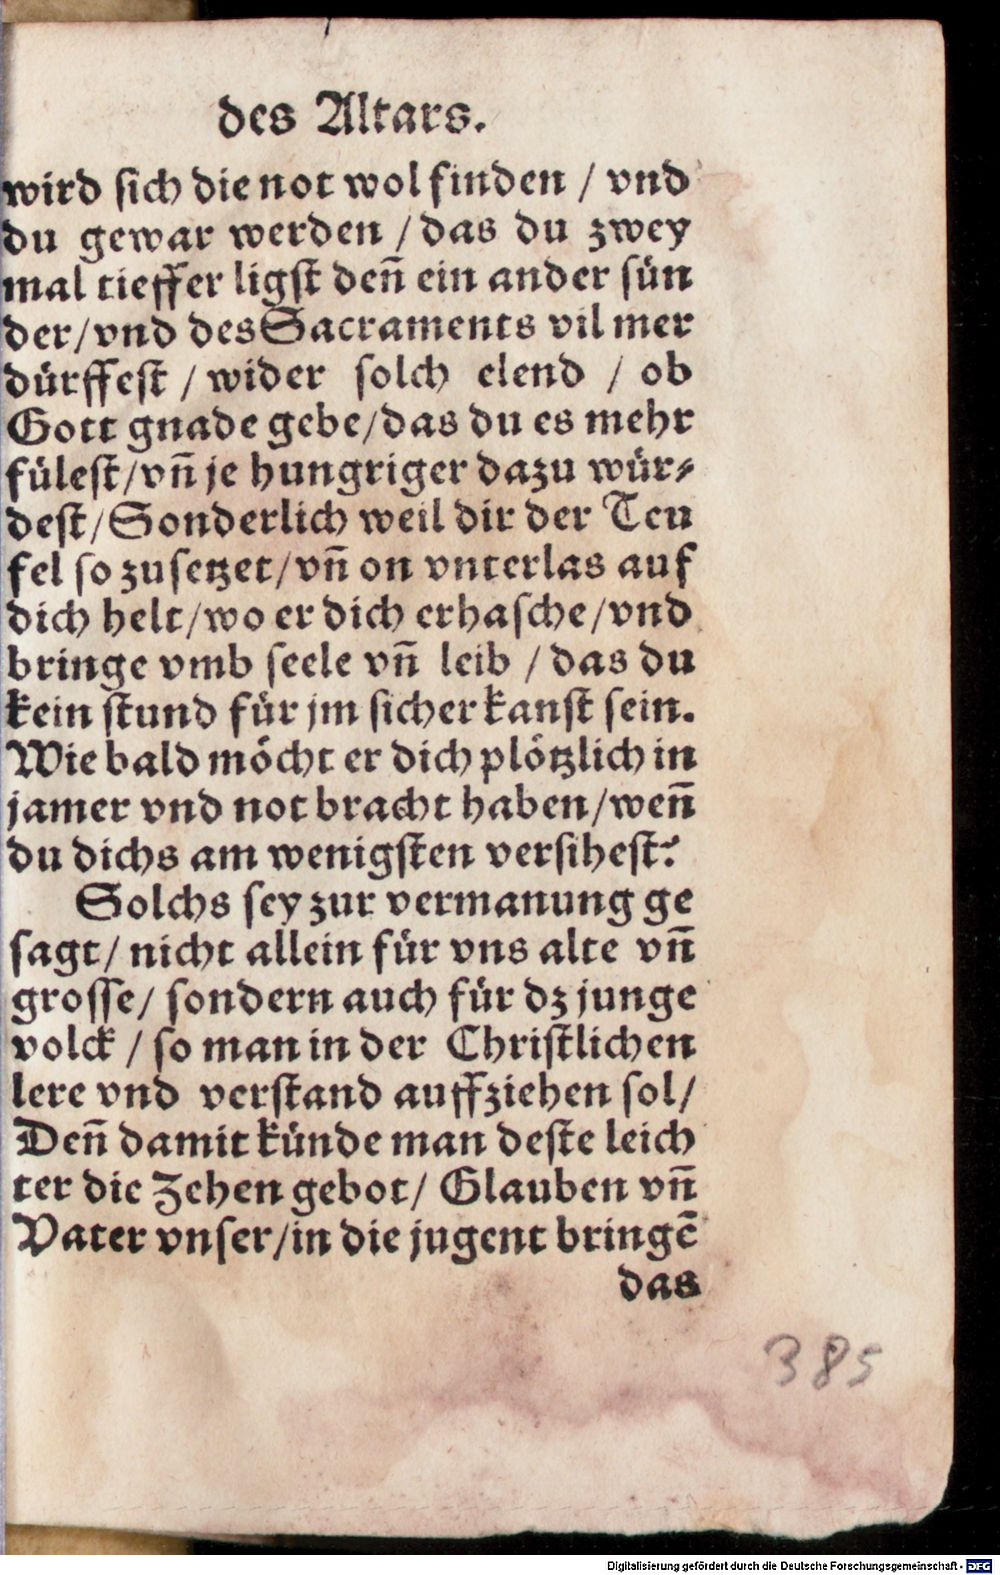 des Altars.
wird sich die not wol finden / vnd
du gewar werden / das du zwey
mal tieffer ligst deñ ein ander sün
der / vnd des Sacraments vil mer
dürffest / wider solch elend / ob
Gott gnade gebe / das du es mehr
fülest / vñ je hungriger dazu wür⸗
dest / Sonderlich weil dir der Teu
fel so zusetzet / vñ on vnterlas auf
dich helt / wo er dich erhasche / vnd
bringe vmb seele vñ leib / das du
kein stund für jm sicher kanst sein.
Wie bald möcht er dich plötzlich in
jamer vnd not bracht haben / weñ
du dichs am wenigsten versihest?
Solchs sey zur vermanung ge
sagt / nicht allein für vns alte vñ
grosse / sondern auch für dz junge
volck / so man in der Christlichen
lere vnd verstand auffziehen sol /
Deñ damit künde man deste leich
ter die Zehen gebot / Glauben vñ
Vater vnser / in die jugent bringẽ
das
385
Digitalisierung gefördert durch die Deutsche Forschungsgemeinschaft - DFG